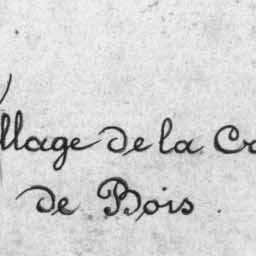 illage de la Cr
de Bois.